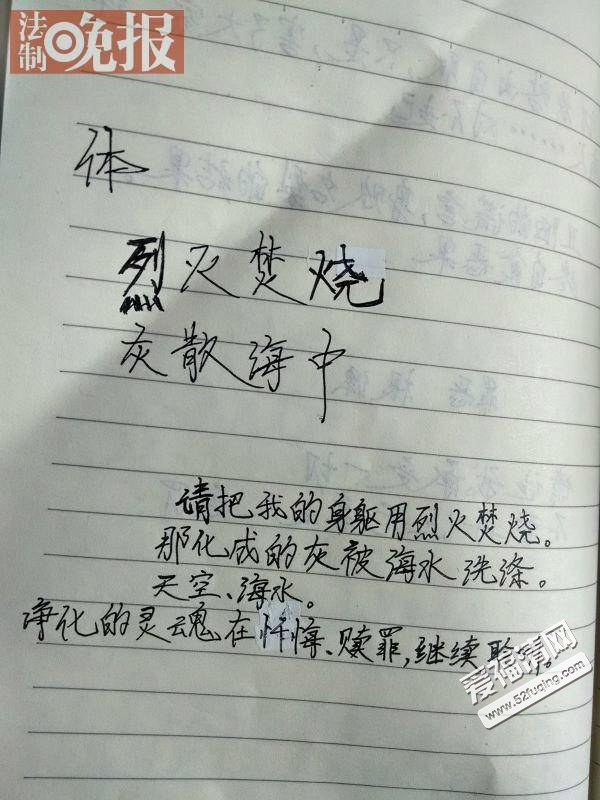 法制晚报
体
烈火焚烧
灰散海中
请把我的身躯用烈火焚烧。
那化成的灰被海水洗涤。
天空、海水。
净化的灵魂在忏悔、赎罪,继续
爱福清网
www.52fuqing.com